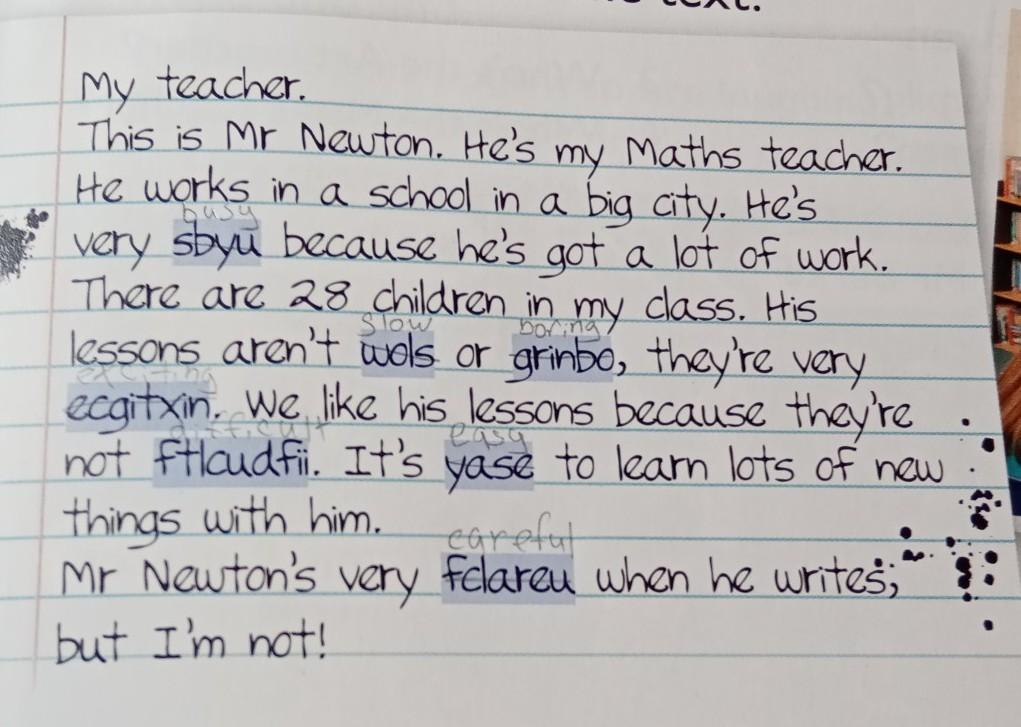 text.
My teacher.
This is Mr Newton. He's my Maths teacher.
He works in a school in a big city. He's
busy
very sbyu because he's got a lot of work.
There are 28 children in my class. His
slow boring
lessons aren't wols or grinbo, they're very
exciting
ecgitxin. We like his lessons because they're
difficult easy
not ftlcudfii. It's yase to learn lots of new
things with him.
careful
Mr Newton's very fclareu when he writes,
but I'm not!